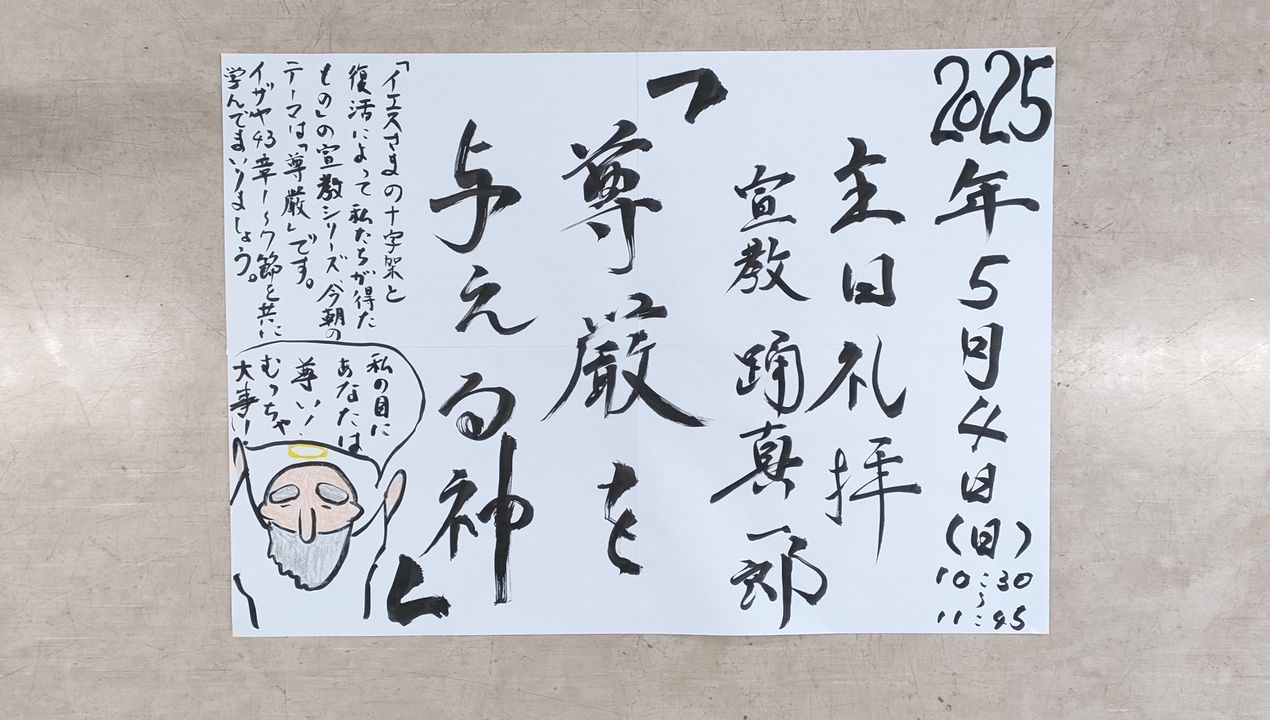 2025年5月4日(日)
10:30
〜
11:45
主日礼拝
宣教 踊真一郎
「尊厳を
与える神」
「イエスさまの十字架と
復活によって私たちが得た
もの」の宣教シリーズ、今朝の
テーマは「尊厳」です。
イザヤ43章1〜7節を共に
学んでまいりましょう。
私の目に
あなたは
尊い!
むっちゃ
大事!!